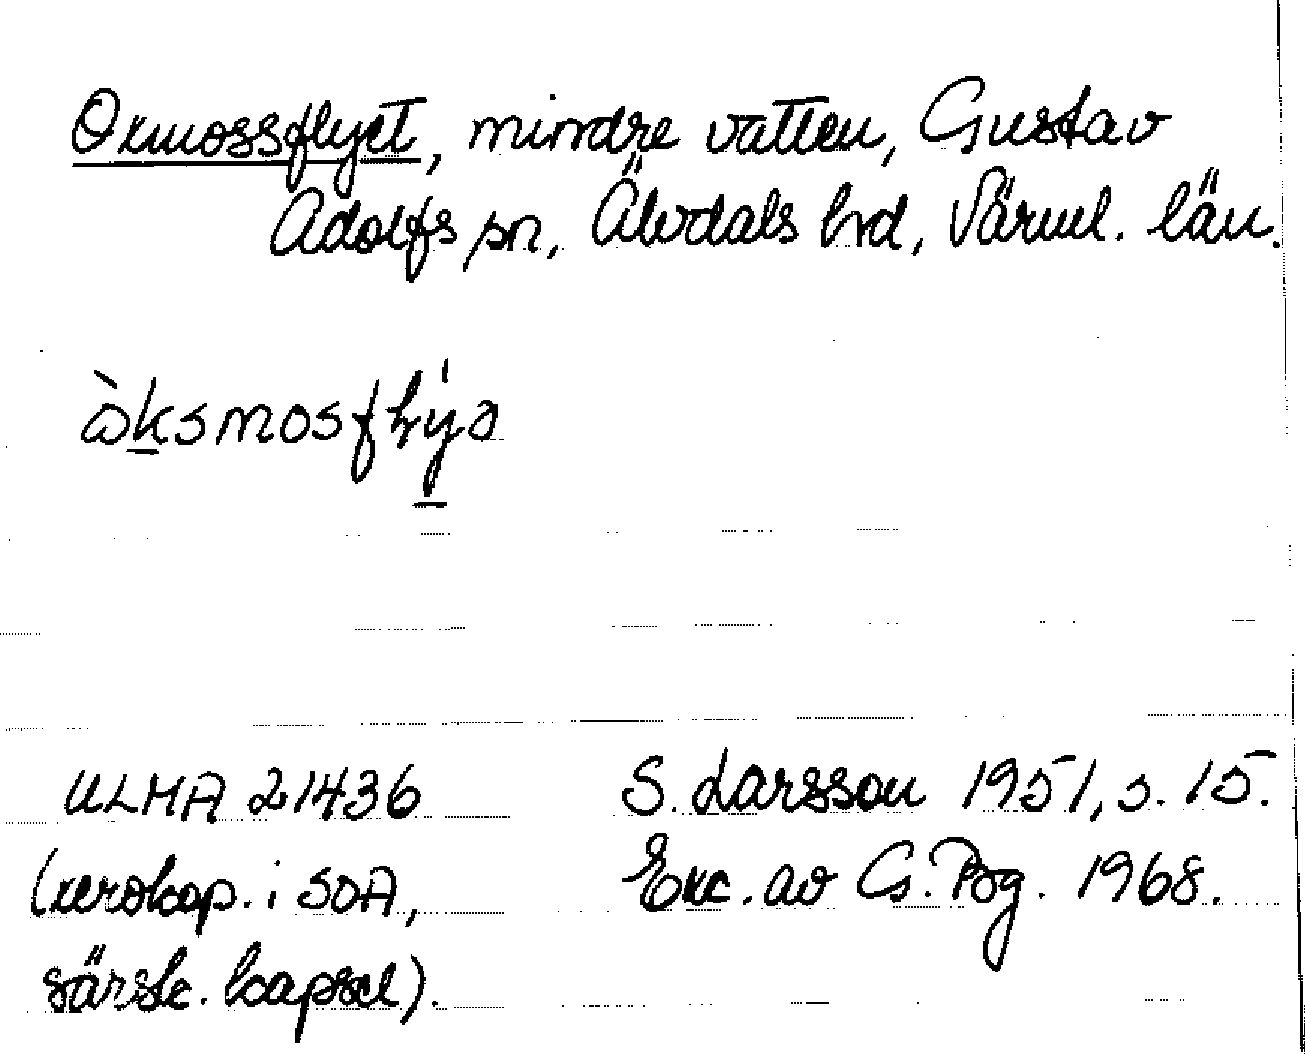 Oxmossflyet, mindre vatten, Gustav
Adolfs sn, Älvdals hd, Värml. län.
ɷ̀ksmosfly̍ə
ULMA 21436
(xerokop. i SOA,
särsk. kapsel).
S. Larsson 1951, s. 15.
Exc. av G. Bg. 1968.